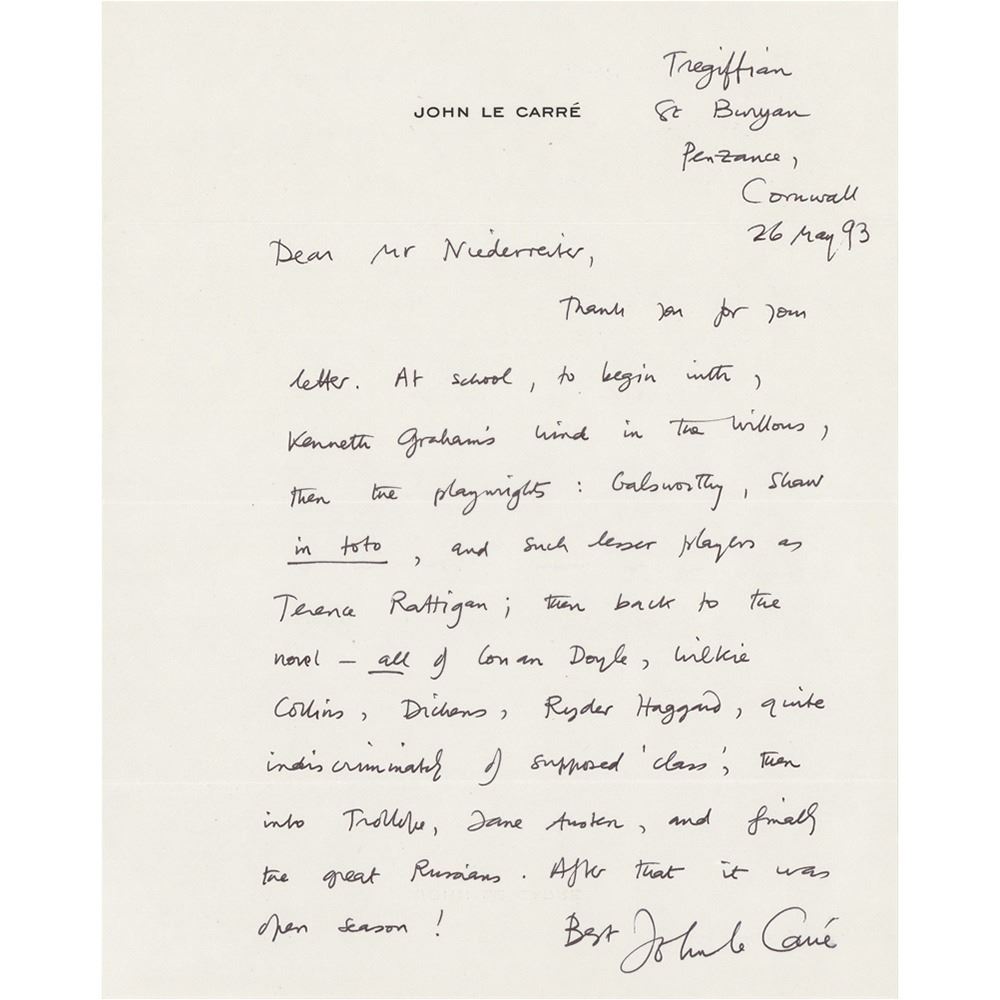 JOHN LE CARRÉ
Tregiffian
St Buryan
Penzance,
Cornwall
26 May 93
Dear Mr Niederreiter,
Thank you for your
letter. At school, to begin with,
Kenneth Graham's Wind in the Willows,
then the playwrights: Galsworthy, Shaw
in toto, and such lesser players as
Terence Rattigan; then back to the
novel – all of Conan Doyle, Wilkie
Collins, Dickens, Ryder Haggard, quite
indiscriminately of supposed 'class'; then
into Trollope, Jane Austen, and finally
the great Russians. After that it was
open season!
Best John le Carré